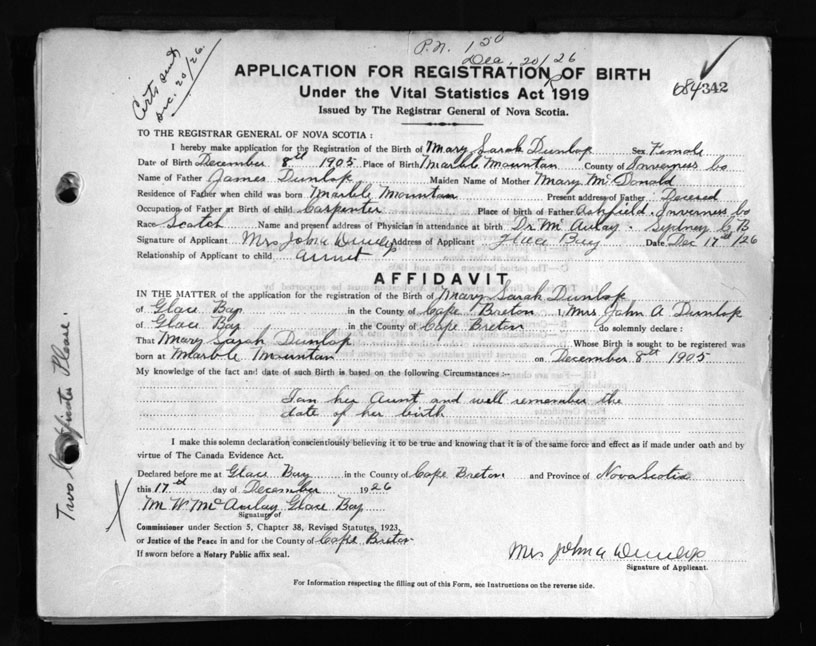 P.N. 150
Dec. 20/26
Certs sent
Dec. 20/26.
APPLICATION FOR REGISTRATION OF BIRTH
684342
Under the Vital Statistics Act 1919
Issued by The Registrar General of Nova Scotia.
TO THE REGISTRAR GENERAL OF NOVA SCOTIA :
I hereby make application for the Registration of the Birth of Mary Sarah Dunlop Sex Female
Date of Birth December 8th 1905 Place of Birth Marble Mountan County of Inverness Co
Name of Father James Dunlop Maiden Name of Mother Mary McDonald
Residence of Father when child was born Marble Mountan Present address of Father Decesed
Occupation of Father at Birth of child Carpenter Place of birth of Father Ashfield. Inverness Co
Race Scotch Name and present address of Physician in attendance at birth Dr McAulay. Sydney C B
Signature of Applicant Mrs John a Dunlop Address of Applicant Glace Bay Date Dec 17th/26
Relationship of Applicant to child Aunt
AFFIDAVIT
IN THE MATTER of the application for the registration of the Birth of Mary Sarah Dunlop
of Glace Bay in the County of Cape Breton I, Mrs. John A Dunlop
of Glace Bay in the County of Cape Breton do solemnly declare :
That Mary Sarah Dunlop Whose Birth is sought to be registered was
born at Marble Mountan on December 8th 1905
My knowledge of the fact and date of such Birth is based on the following Circumstances :-
I am her Aunt and well remember the
date of her birth
I make this solemn declaration conscientiously believing it to be true and knowing that it is of the same force and effect as if made under oath and by
virtue of The Canada Evidence Act.
Declared before me at Glace Bay in the County of Cape Breton and Province of Nova Scotia
this 17th day of December 1926
M W McAulay Glace Bay
Signature of
Commissioner under Section 5, Chapter 38, Revised Statutes, 1923,
or Justice of the Peace in and for the County of Cape Breton
If sworn before a Notary Public affix seal.
Mrs John a Dunlop
Signature of Applicant.
For Information respecting the filling out of this Form, see Instructions on the reverse side.
Two Certificates Please.